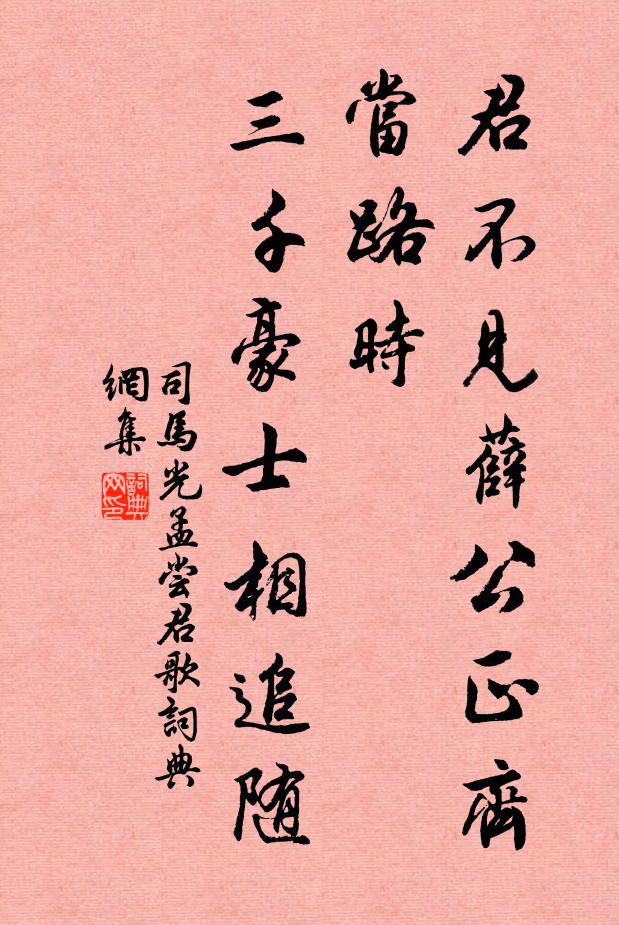 君不見薛公正齊
當路時
三千豪士相追随
司馬光孟尝君歌詞典
網集
詞典
网印